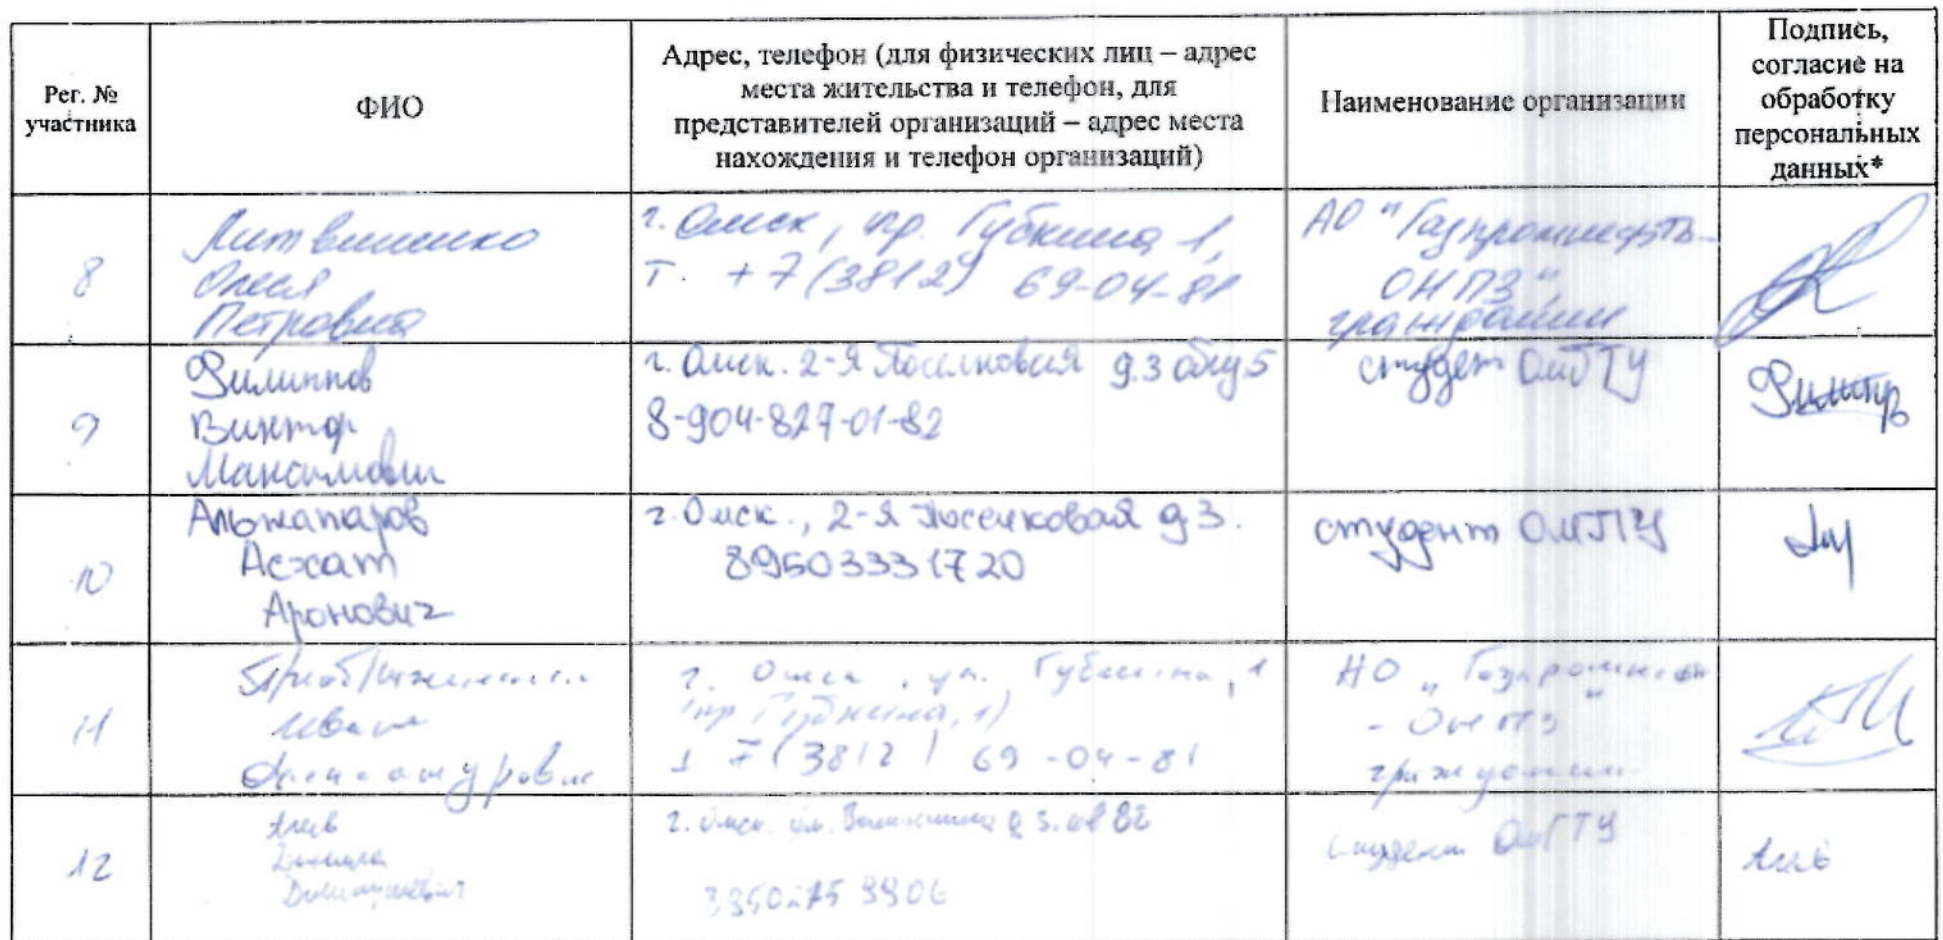 Рег. №
участника
ФИО
Адрес, телефон (для физических лиц – адрес
места жительства и телефон, для
представителей организаций – адрес места
нахождения и телефон организаций)
Наименование организации
Подпись,
согласие на
обработку
персональных
данных*
8
Литвиненко
Олеся
Петровна
г. Омск, пр. Губкина 1,
т. +7(3812) 69-04-81
АО "Газпромнефть-
ОНПЗ",
гражданин
9
Филиппов
Виктор
Максимович
г. Омск. 2-я Поселковая д.3 общ 5
8-904-827-01-82
студент ОмГТУ
10
Альжапаров
Асхат
Аронович
г. Омск., 2-я Поселковая д 3.
89503331720
студент ОмГТУ
11
Иван
г. Омск, ул. Губкина, 1
(пр Губкина, 1)
7(3812) 69-04-81
АО "Газпромнефть
- ОНПЗ"
гражданин
12
г. Омск ул.
студент ОмГТУ